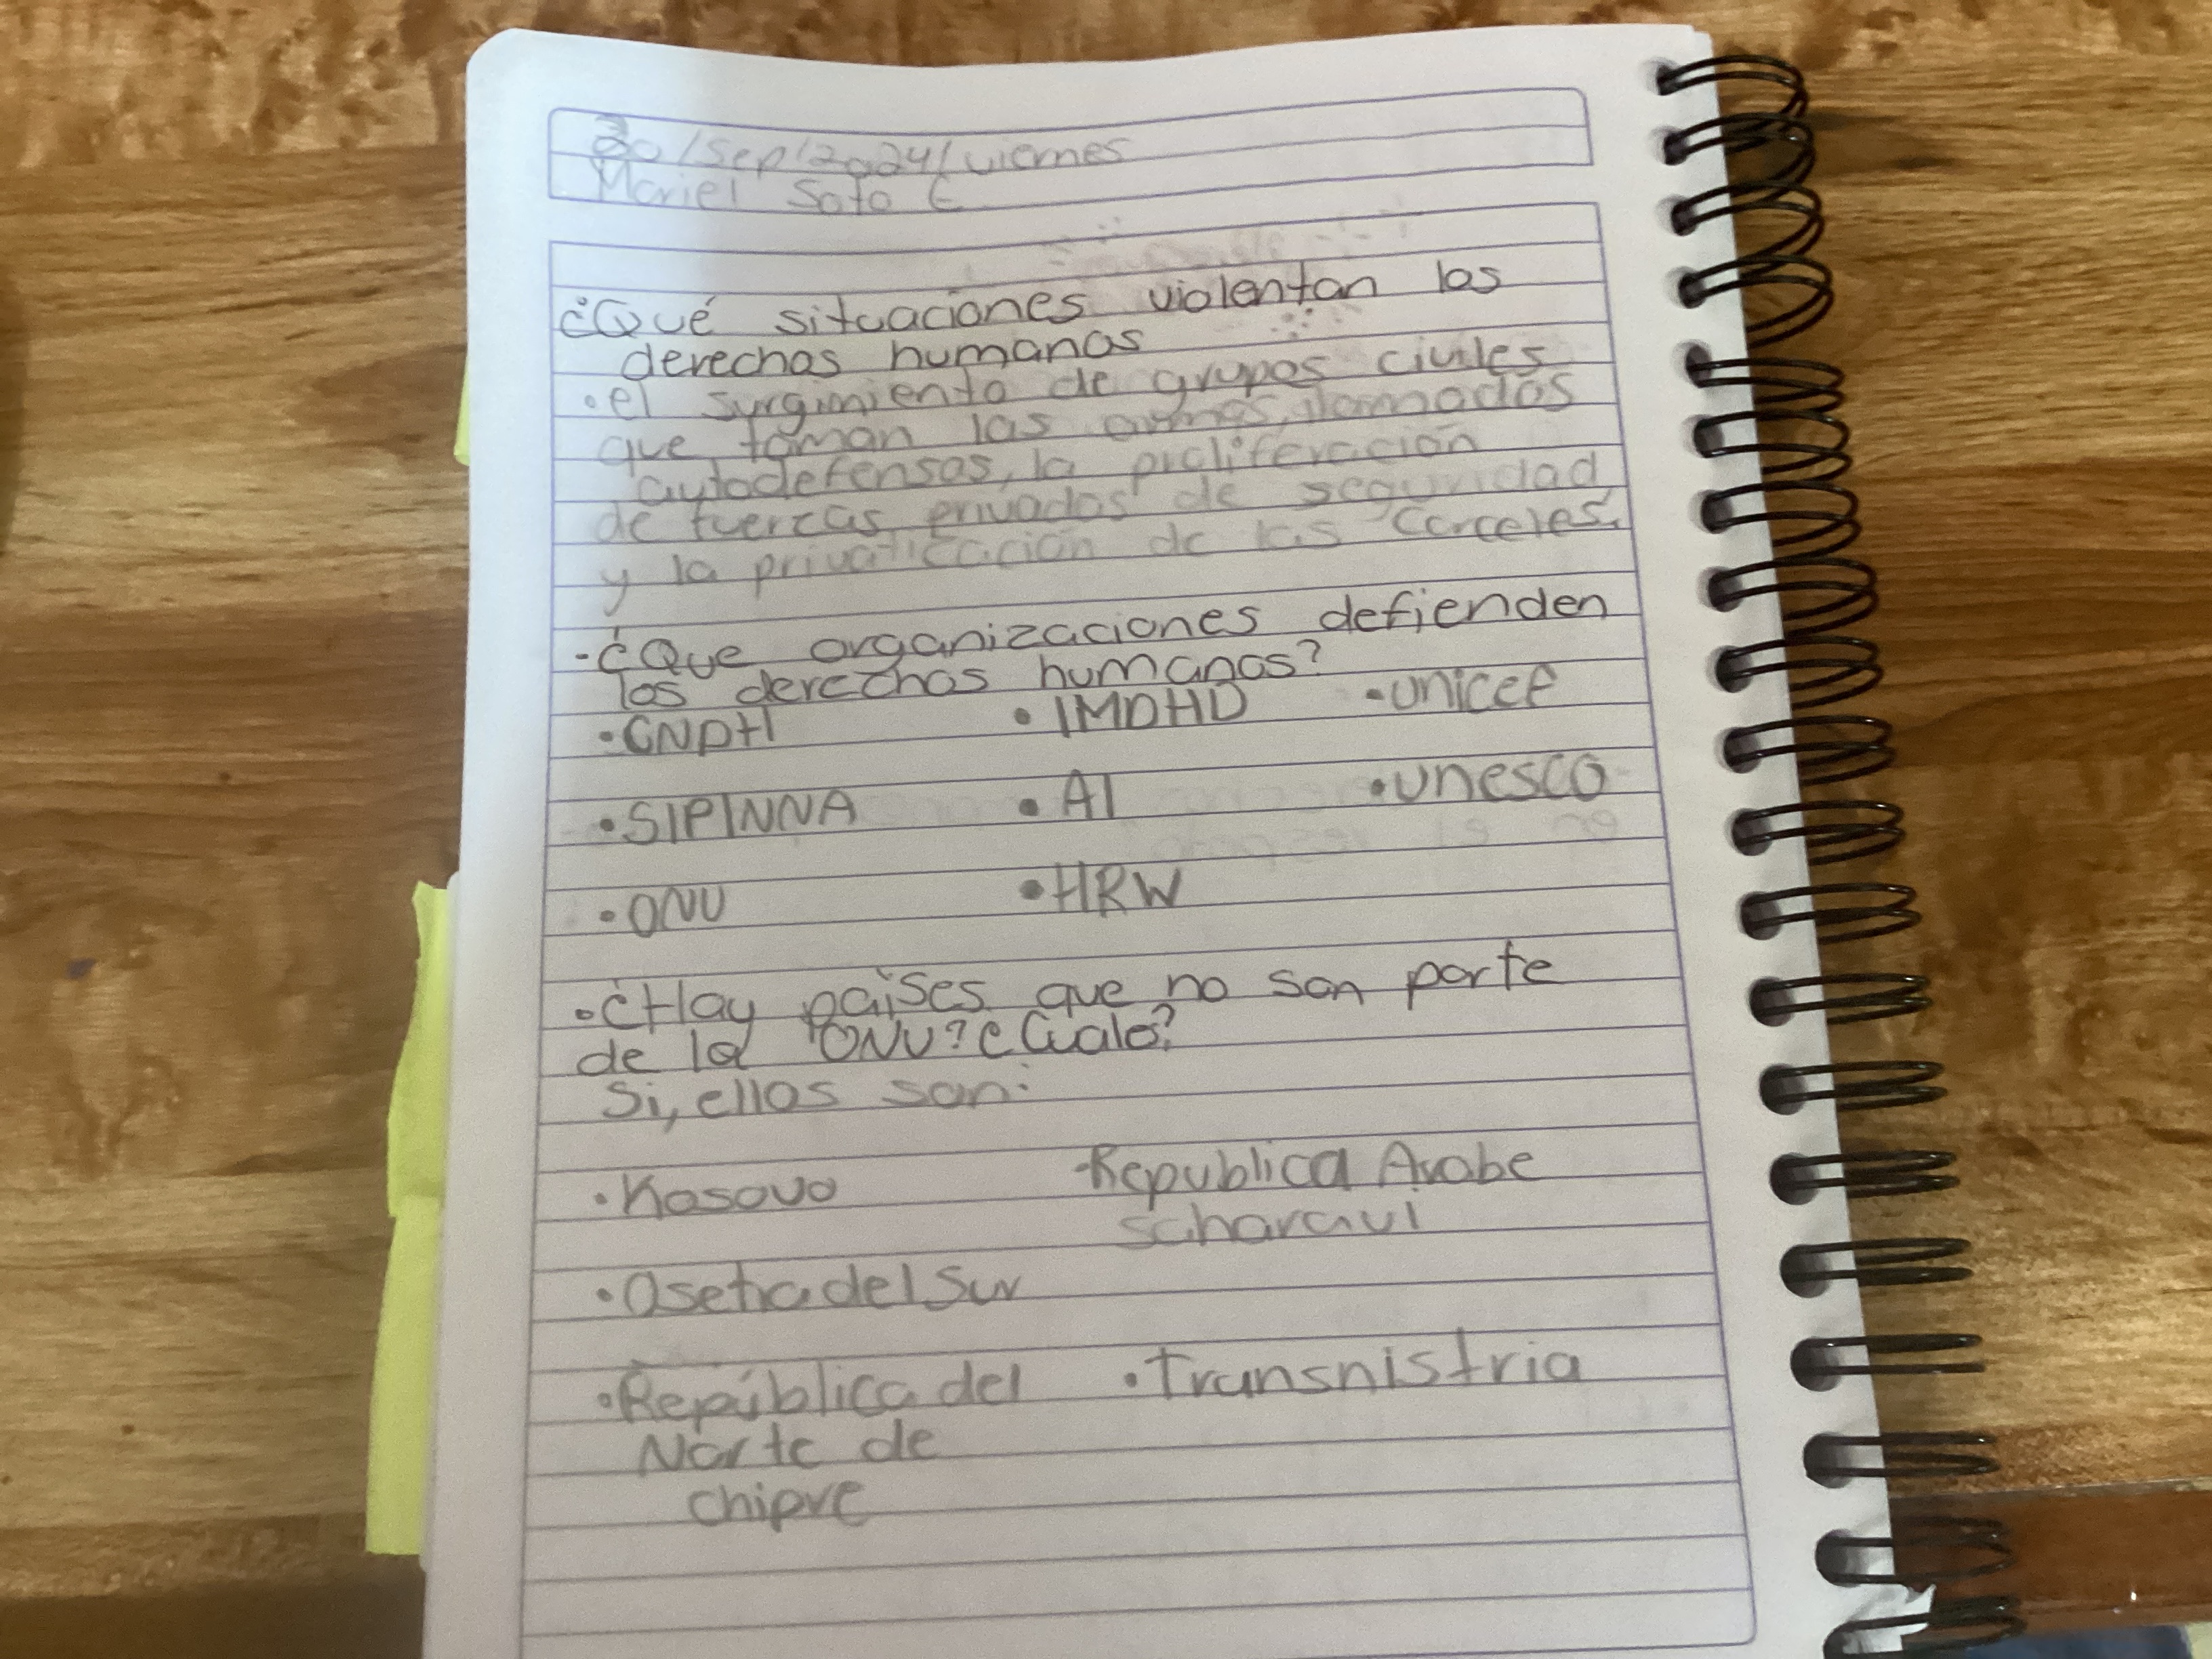 30/Sep/2024/viernes
Mariel Soto E.
¿Qué situaciones violentan los
derechos humanos
•el surgimiento de grupos civiles
que toman las armas, llamados
autodefensas, la proliferación
de fuerzas privadas de seguridad,
y la privatización de las carceles.
-¿Que organizaciones defienden
los derechos humanos?
•CNDH •IMDHD •unicef
•SIPINNA •AI •unesco
•ONU •HRW
•¿Hay países que no son parte
de la ONU? ¿Cuale?
Si, ellos son:
•Kosovo -Republica Arabe
saharaui
•Osetia del Sur
•República del •Transnistria
Norte de
chipre